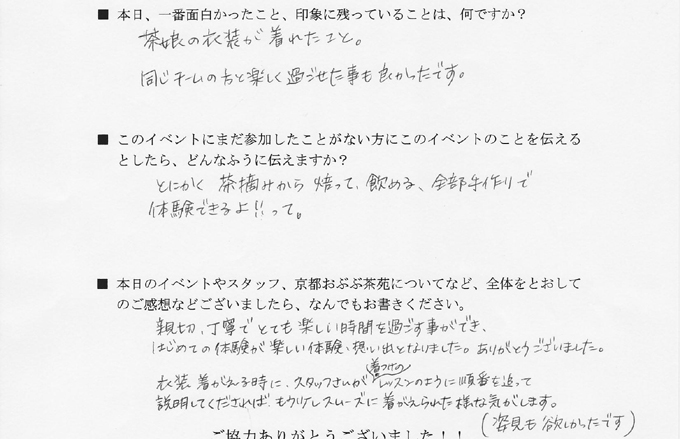 ■ 本日、一番面白かったこと、印象に残っていることは、何ですか？
茶娘の衣装が着れたこと。
同じチームの方と楽しく過ごせた事も良かったです。
■ このイベントにまだ参加したことがない方にこのイベントのことを伝える
としたら、どんなふうに伝えますか？
とにかく 茶摘みから 焙って、飲める、全部手作りで
体験できるよ!!って。
■ 本日のイベントやスタッフ、京都おぶぶ茶苑についてなど、全体をとおして
のご感想などございましたら、なんでもお書きください。
親切、丁寧でとても楽しい時間を過ごす事ができ、
はじめての体験が楽しい体験、想い出となりました。ありがとうございました。
衣装 着がえる時に、スタッフさんが着つけのレッスンのように順番を追って
説明してくだされば、もう少しスムーズに着がえられた様な気がします。
(姿見も欲しかったです)
ご協力ありがとうございました！！